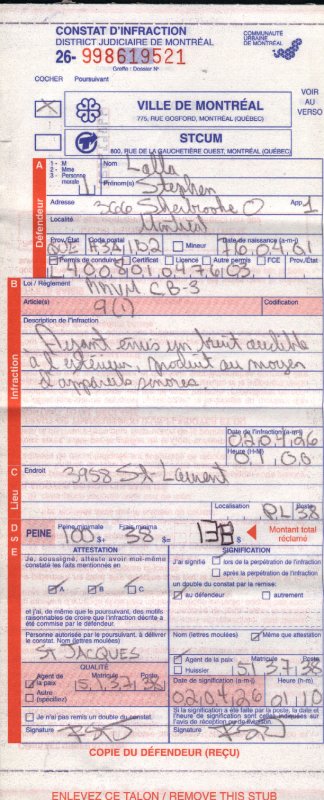 CONSTAT D'INFRACTION
DISTRICT JUDICIAIRE DE MONTRÉAL
COMMUNAUTÉ URBAINE DE MONTRÉAL
26- 998619521
Greffe : Dossier N°
COCHER Poursuivant
VOIR AU VERSO
VILLE DE MONTRÉAL
775, RUE GOSFORD, MONTRÉAL (QUÉBEC)
STCUM
800, RUE DE LA GAUCHETIÈRE OUEST, MONTRÉAL (QUÉBEC)
A
Défendeur
1 - M
2 - Mme
3 - Personne morale
Nom Lalla
Prénom(s) Stephen
Adresse 3666 Sherbrooke O App. 1
Localité Montréal
Prov./État Code postal Mineur Date de naissance (a-m-j)
QUE H3A1B2 76.04.01
Permis de conduire Certificat Licence Autre permis FCE Prov./État
B
Infraction
Loi / Règlement RRVM CB-3
Article(s) 9(1) Codification
Description de l'infraction
Ayant émis un bruit audible
à l'extérieur, produit au moyen
d'appareils sonores.
Date de l'infraction (a-m-j)
02.04.26
Heure (H-M)
01.00
C
Lieu
Endroit 3958 St-Laurent
Localisation Poste
PL 38
D
PEINE Peine minimale 100 $+ Frais minima 38 $= 138 $ Montant total réclamé
S
E
ATTESTATION
Je, soussigné, atteste avoir moi-même constaté les faits mentionnés en
A B C
et j'ai, de même que le poursuivant, des motifs raisonnables de croire que l'infraction décrite a été commise par le défendeur.
Personne autorisée par le poursuivant, à délivrer le constat. Nom (lettres moulées)
ST JACQUES
QUALITÉ
Agent de la paix Matricule Poste
Autre (spécifiez)
Je n'ai pas remis un double du constat.
Signature
SIGNATURE
J'ai signifié lors de la perpétration de l'infraction
après la perpétration de l'infraction
un double du constat par la remise:
au défendeur autrement
Nom (lettres moulées) Même que attestation
Agent de la paix Matricule Poste
Huissier
Date de signification (a-m-j) Heure (h-m)
02.04.26 01.10
Si la signification a été faite par la poste, la date et l'heure de signification sont celles indiquées sur l'avis de réception ou de livraison.
Signature
COPIE DU DÉFENDEUR (REÇU)
ENLEVEZ CE TALON / REMOVE THIS STUB